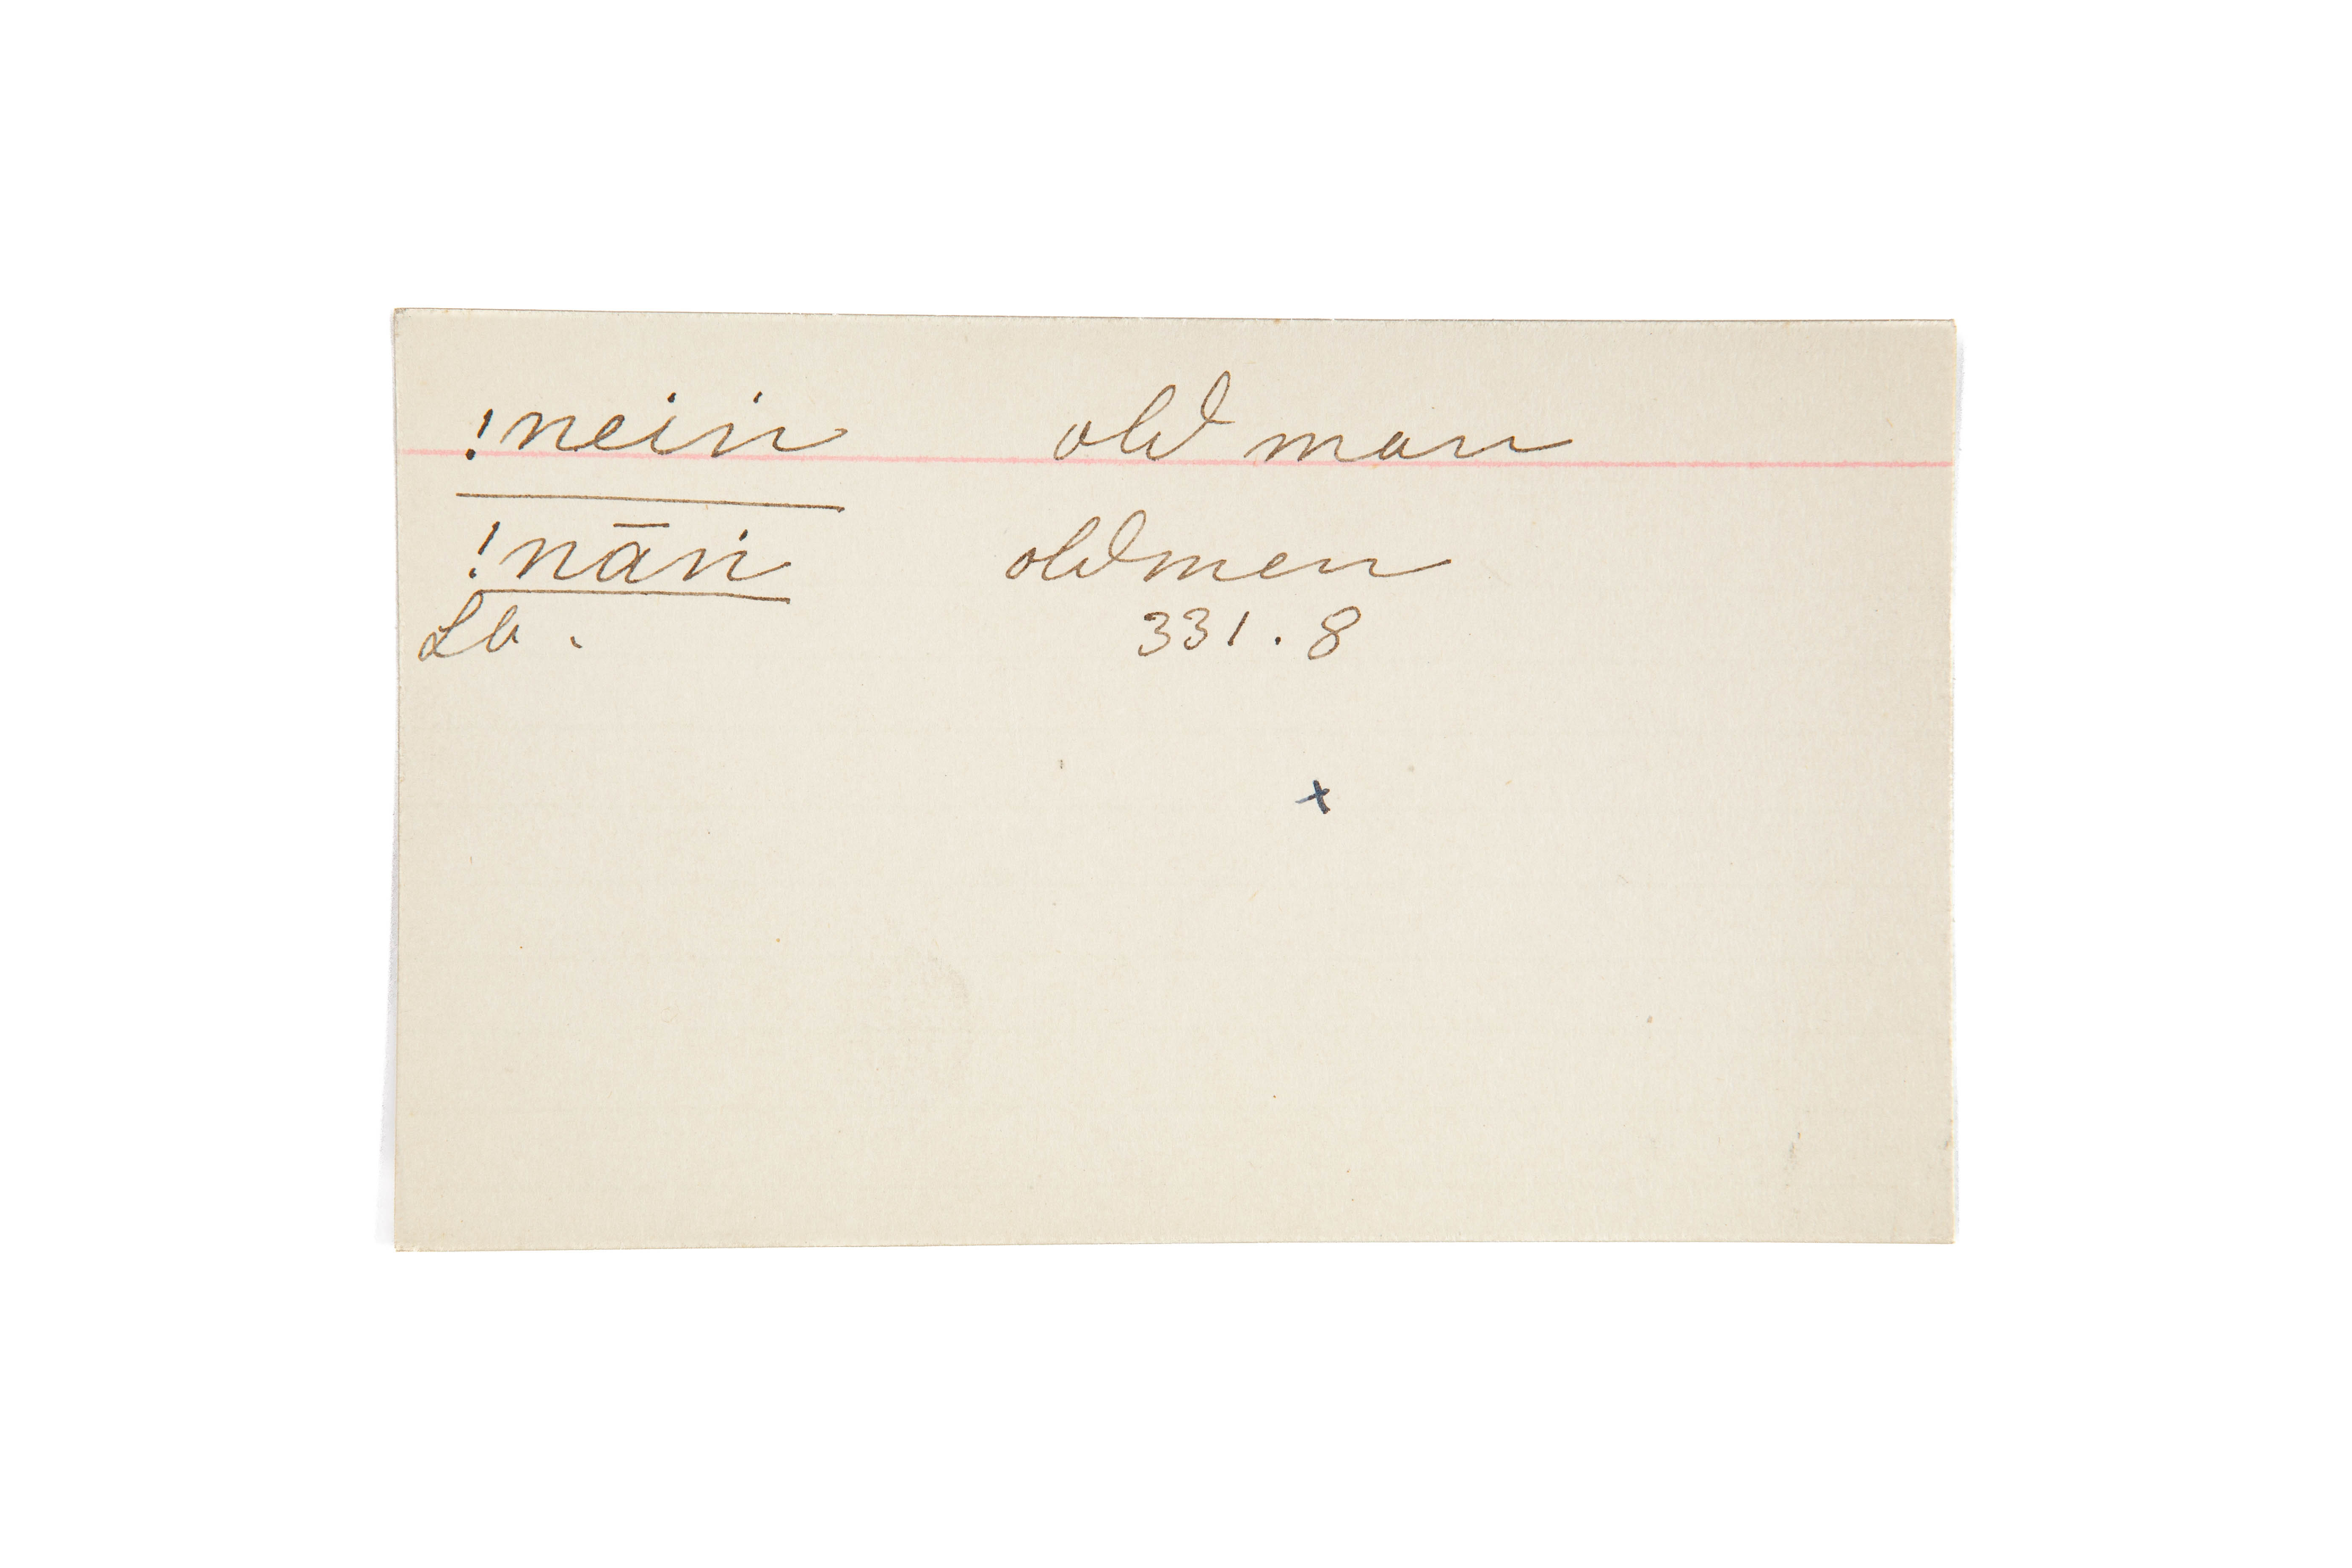 !neiṅ old man
!nāṅ old men
Lb. 331.8
x